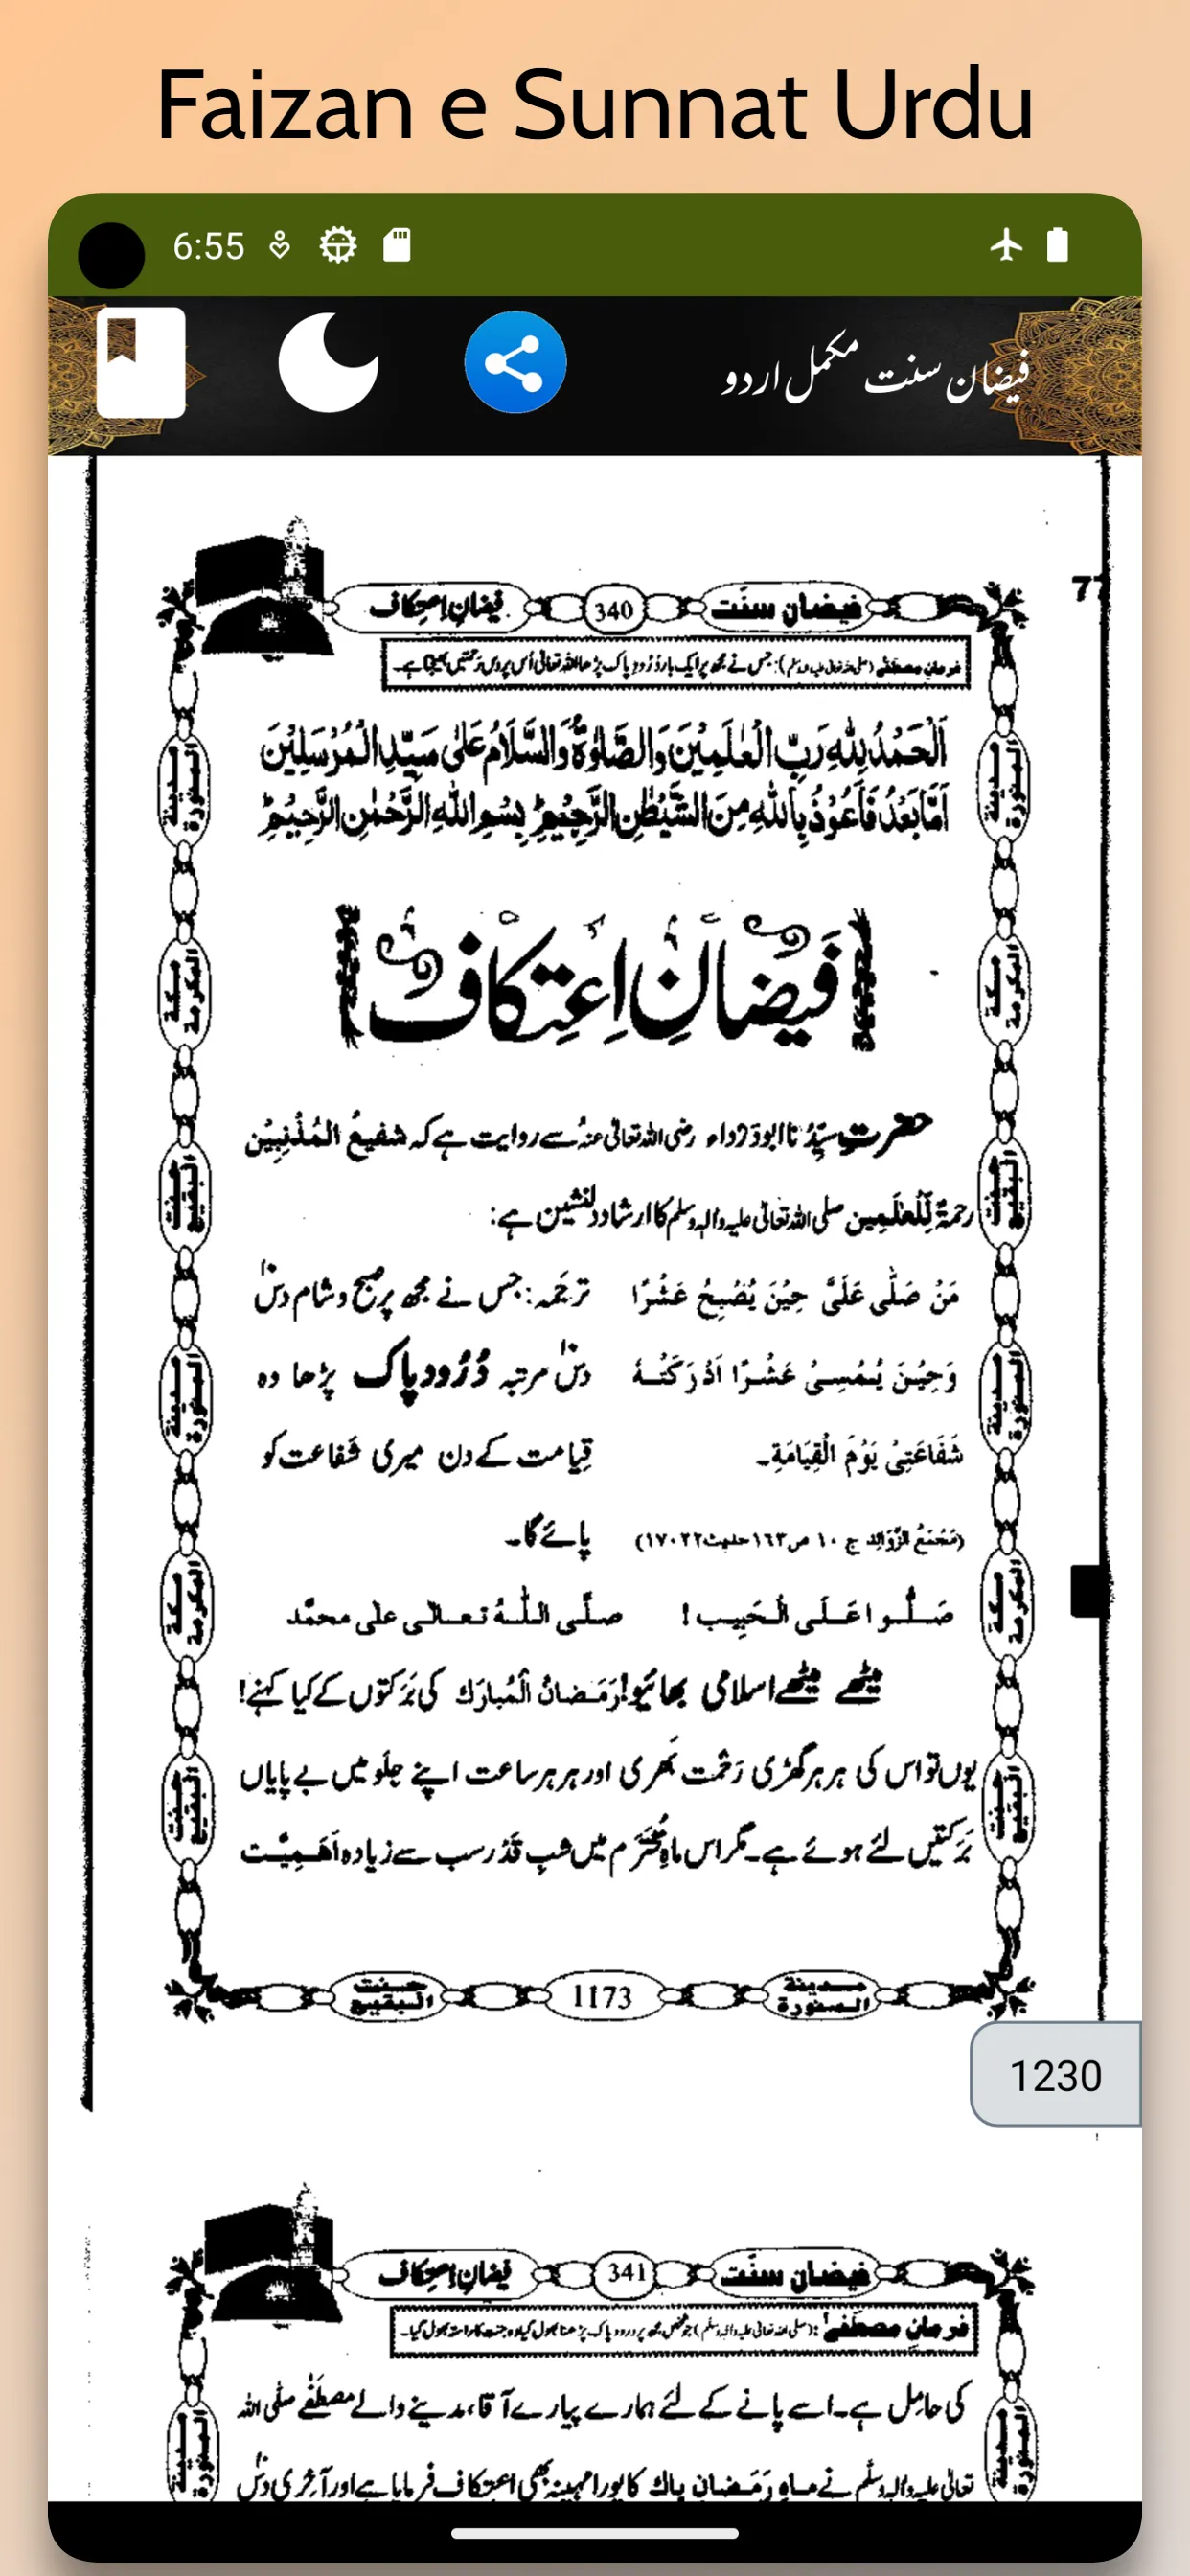 Faizan e Sunnat Urdu
6:55
فیضان سنت مکمل اردو
77
فیضانِ سنّت 340 فیضانِ اِعتِکاف
فرمانِ مصطفٰے (صلی اللہ تعالیٰ علیہ والہ وسلم): جس نے مجھ پر ایک بار دُرُود پاک پڑھا اللہ تعالیٰ اُس پر دس رحمتیں بھیجتا ہے۔
اَلْحَمْدُ لِلّٰهِ رَبِّ الْعٰلَمِیْنَ وَالصَّلٰوةُ وَالسَّلَامُ عَلٰی سَیِّدِ الْمُرْسَلِیْنَ
اَمَّا بَعْدُ فَاَعُوْذُ بِاللّٰهِ مِنَ الشَّیْطٰنِ الرَّجِیْمِ ؕ بِسْمِ اللّٰهِ الرَّحْمٰنِ الرَّحِیْمِ ؕ
فَیضانِ اِعتِکاف
حضرتِ سیِّدُنا ابو دَرْداء رضی اللہ تعالیٰ عنہُ سے روایت ہے کہ شفیعُ المُذْنِبِیْن
رَحمۃٌ لِّلعٰلَمِین صلی اللہ تعالیٰ علیہ والہٖ وسلم کا ارشادِ دلنشین ہے:
مَنْ صَلّٰی عَلَیَّ حِیْنَ یُصْبِحُ عَشْرًا
وَحِیْنَ یُمْسِیْ عَشْرًا اَدْرَکَتْهُ
شَفَاعَتِیْ یَوْمَ الْقِیَامَةِ۔
(مَجْمَعُ الزَّوَائِد ج ١٠ ص١٦٣ حدیث١٧٠٢٢)
ترجَمہ: جس نے مجھ پر صبح و شام دس
دس مرتبہ دُرُودِ پاک پڑھا وہ
قِیامت کے دن میری شَفاعت کو
پائے گا۔
صَلُّوا عَلَی الْحَبِیب ! صلَّی اللّٰهُ تعالٰی علٰی محمَّد
میٹھے میٹھے اسلامی بھائیو! رَمَضانُ الْمُبارَك کی بَرَکتوں کے کیا کہنے!
یوں تو اس کی ہر ہر گھڑی رَحْمت بھری اور ہر ہر ساعت اپنے جلَو میں بے پایاں
بَرَکتیں لئے ہوئے ہے۔ مگر اس ماہِ مُحْتَرَم میں شبِ قَدْر سب سے زیادہ اَھَمِیَّت
مدینة المنورة
مكة المكرمة
جنت البقیع
مدینة المنورة
مكة المكرمة
جنت البقیع
مدینة المنورة
مكة المكرمة
جنت البقیع
مدینة المنورة
مكة المكرمة
جنت البقیع
مدینة المنورة 1173 جنت البقیع
1230
فیضانِ سنّت 341 فیضانِ اِعتِکاف
فرمانِ مصطفٰے: (صلی اللہ تعالیٰ علیہ والہ وسلم) جو شخص مجھ پر درود پاک پڑھنا بھول گیا وہ جنت کا راستہ بھول گیا۔
کی حامِل ہے۔ اسے پانے کے لئے ہمارے پیارے آقا، مدینے والے مصطَفٰے صلَّی اللہ
تعالٰی علیہ والہٖ وسلَّم نے ماہِ رَمَضان پاك کا پورا مہینہ بھی اعتِکاف فرمایا ہے اور آخِری دس
مدینة المنورة
مدینة المنورة